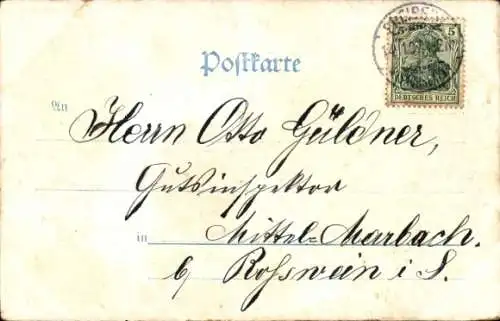 Postkarte
5
DEUTSCHES REICH
An Herrn Otto Güldner,
Gutsinspektor
in Mittel=Marbach.
b/ Rosswein i. S.